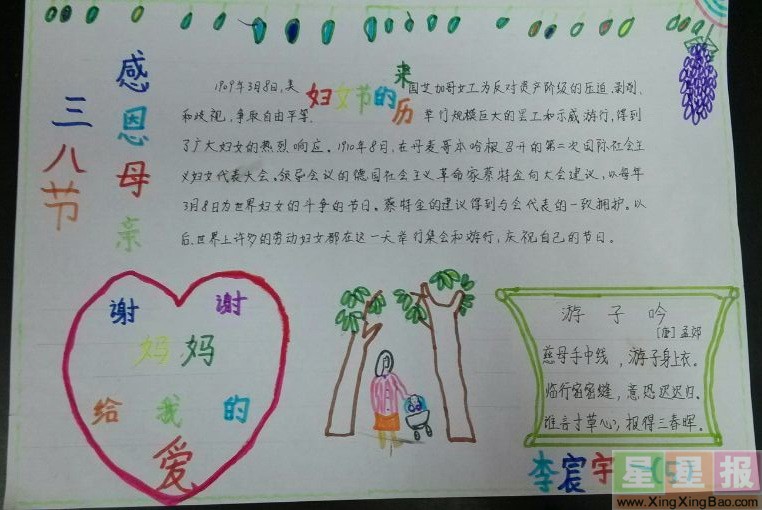 三八节
感恩母亲
妇女节的来历
1909年3月8日,美国芝加哥女工为反对资产阶级的压迫、剥削、
和歧视,争取自由平等,举行规模巨大的罢工和示威游行,得到
了广大妇女的热烈响应。1910年8月,在丹麦哥本哈根召开的第二次国际社会主
义妇女代表大会。领导会议的德国社会主义革命家蔡特金向大会建议,以每年
3月8日为世界妇女的斗争的节日。蔡特金的建议得到与会代表的一致拥护。以
后,世界上许多的劳动妇女都在这一天举行集会和游行,庆祝自己的节日。
谢谢
妈妈
给我的
爱
游子吟
[唐]孟郊
慈母手中线,游子身上衣。
临行密密缝,意恐迟迟归。
谁言寸草心,报得三春晖。
李宸宇
星星报
www.XingXingBao.com